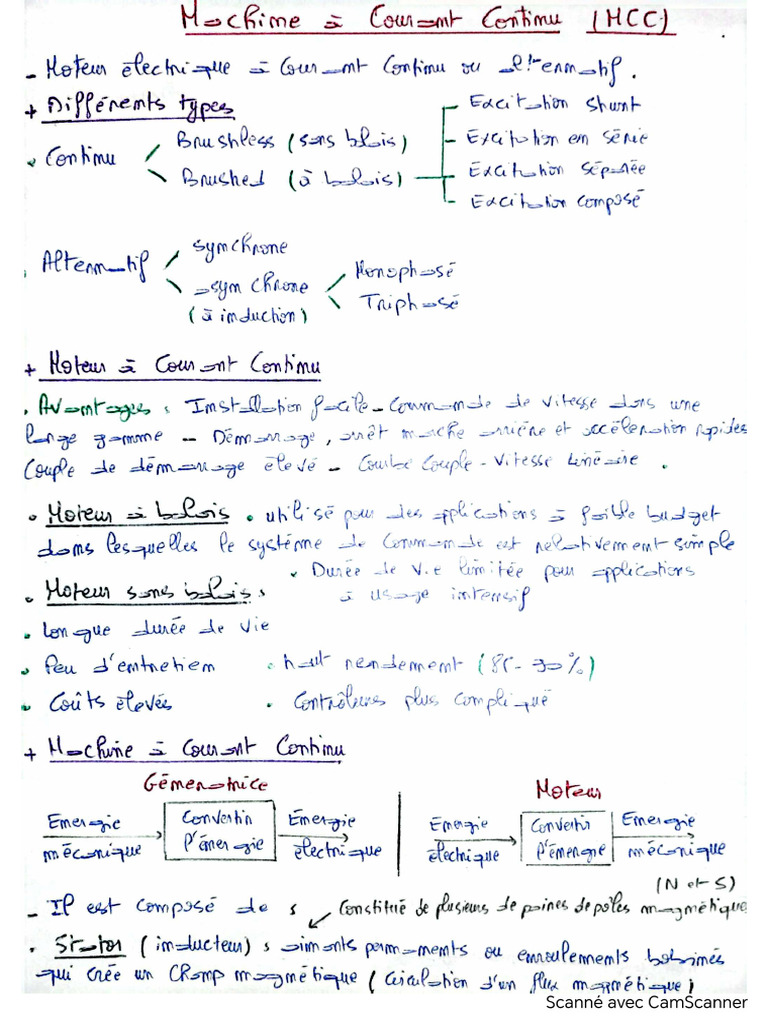 Machine à Courant Continu (MCC)
- Moteur électrique à Courant Continu ou alternatif.
+ Différents types
Excitation Shunt
Brushless (sans balais)
Excitation en série
• Continu
Excitation Séparée
Brushed (à balais)
Excitation composé
Synchrone
Alternatif
Monophasé
asynchrone
Triphasé
(à induction)
+ Moteur à Courant Continu
• Avantages : Installation facile - Commande de vitesse dans une
large gamme - Démarrage, arrêt marche arrière et accélération rapides
Couple de démarrage élevé - Courbe Couple - Vitesse linéaire .
• Moteur à balais • utilisé pour des applications à faible budget
dans lesquelles le système de Commande est relativement simple
• Durée de vie limitée pour applications
• Moteur sans balais :
à usage intensif
• longue durée de vie
• Peu d'entretien • haut rendement (85-90%)
• Coûts élevés • Contrôleurs plus compliqué
+ Machine à Courant Continu
Génératrice
Moteur
Energie
mécanique
Convertir
l'énergie
Énergie
électrique
Énergie
électrique
Convertir
l'énergie
Energie
mécanique
(N et S)
- Il est composé de : Constitué de plusieurs de paires de pôles magnétique
• Stator (inducteur) : aimants permanents ou enroulements bobinés
qui crée un Champ magnétique (Circulation d'un flux magnétique)
Scanné avec CamScanner